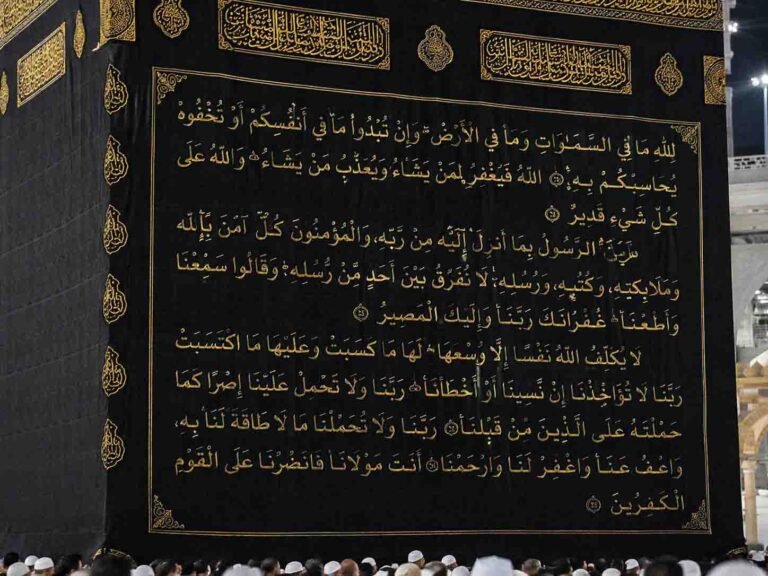 لِلّٰهِ مَا فِي السَّمٰوَاتِ وَمَا فِي الْأَرْضِ وَإِنْ تُبْدُوا مَا فِي أَنْفُسِكُمْ أَوْ تُخْفُوهُ
يُحَاسِبْكُمْ بِهِ اللّٰهُ فَيَغْفِرُ لِمَنْ يَشَاءُ وَيُعَذِّبُ مَنْ يَشَاءُ وَاللّٰهُ عَلَى
كُلِّ شَيْءٍ قَدِيرٌ
الرَّسُولُ بِمَا أُنْزِلَ إِلَيْهِ مِنْ رَبِّهِ وَالْمُؤْمِنُونَ كُلٌّ آمَنَ بِاللّٰهِ
وَمَلَائِكَتِهِ وَكُتُبِهِ وَرُسُلِهِ لَا نُفَرِّقُ بَيْنَ أَحَدٍ مِّنْ رُسُلِهِ وَقَالُوا سَمِعْنَا
وَأَطَعْنَا غُفْرَانَكَ رَبَّنَا وَإِلَيْكَ الْمَصِيرُ
لَا يُكَلِّفُ اللّٰهُ نَفْسًا إِلَّا وُسْعَهَا لَهَا مَا كَسَبَتْ وَعَلَيْهَا مَا اكْتَسَبَتْ
رَبَّنَا لَا تُؤَاخِذْنَا إِنْ نَّسِينَا أَوْ أَخْطَأْنَا رَبَّنَا وَلَا تَحْمِلْ عَلَيْنَا إِصْرًا كَمَا
حَمَلْتَهُ عَلَى الَّذِينَ مِنْ قَبْلِنَا رَبَّنَا وَلَا تُحَمِّلْنَا مَا لَا طَاقَةَ لَنَا بِهِ
وَاعْفُ عَنَّا وَاغْفِرْ لَنَا وَارْحَمْنَا أَنْتَ مَوْلَانَا فَانْضُرْنَا عَلَى الْقَوْمِ
الْكٰفِرِينَ